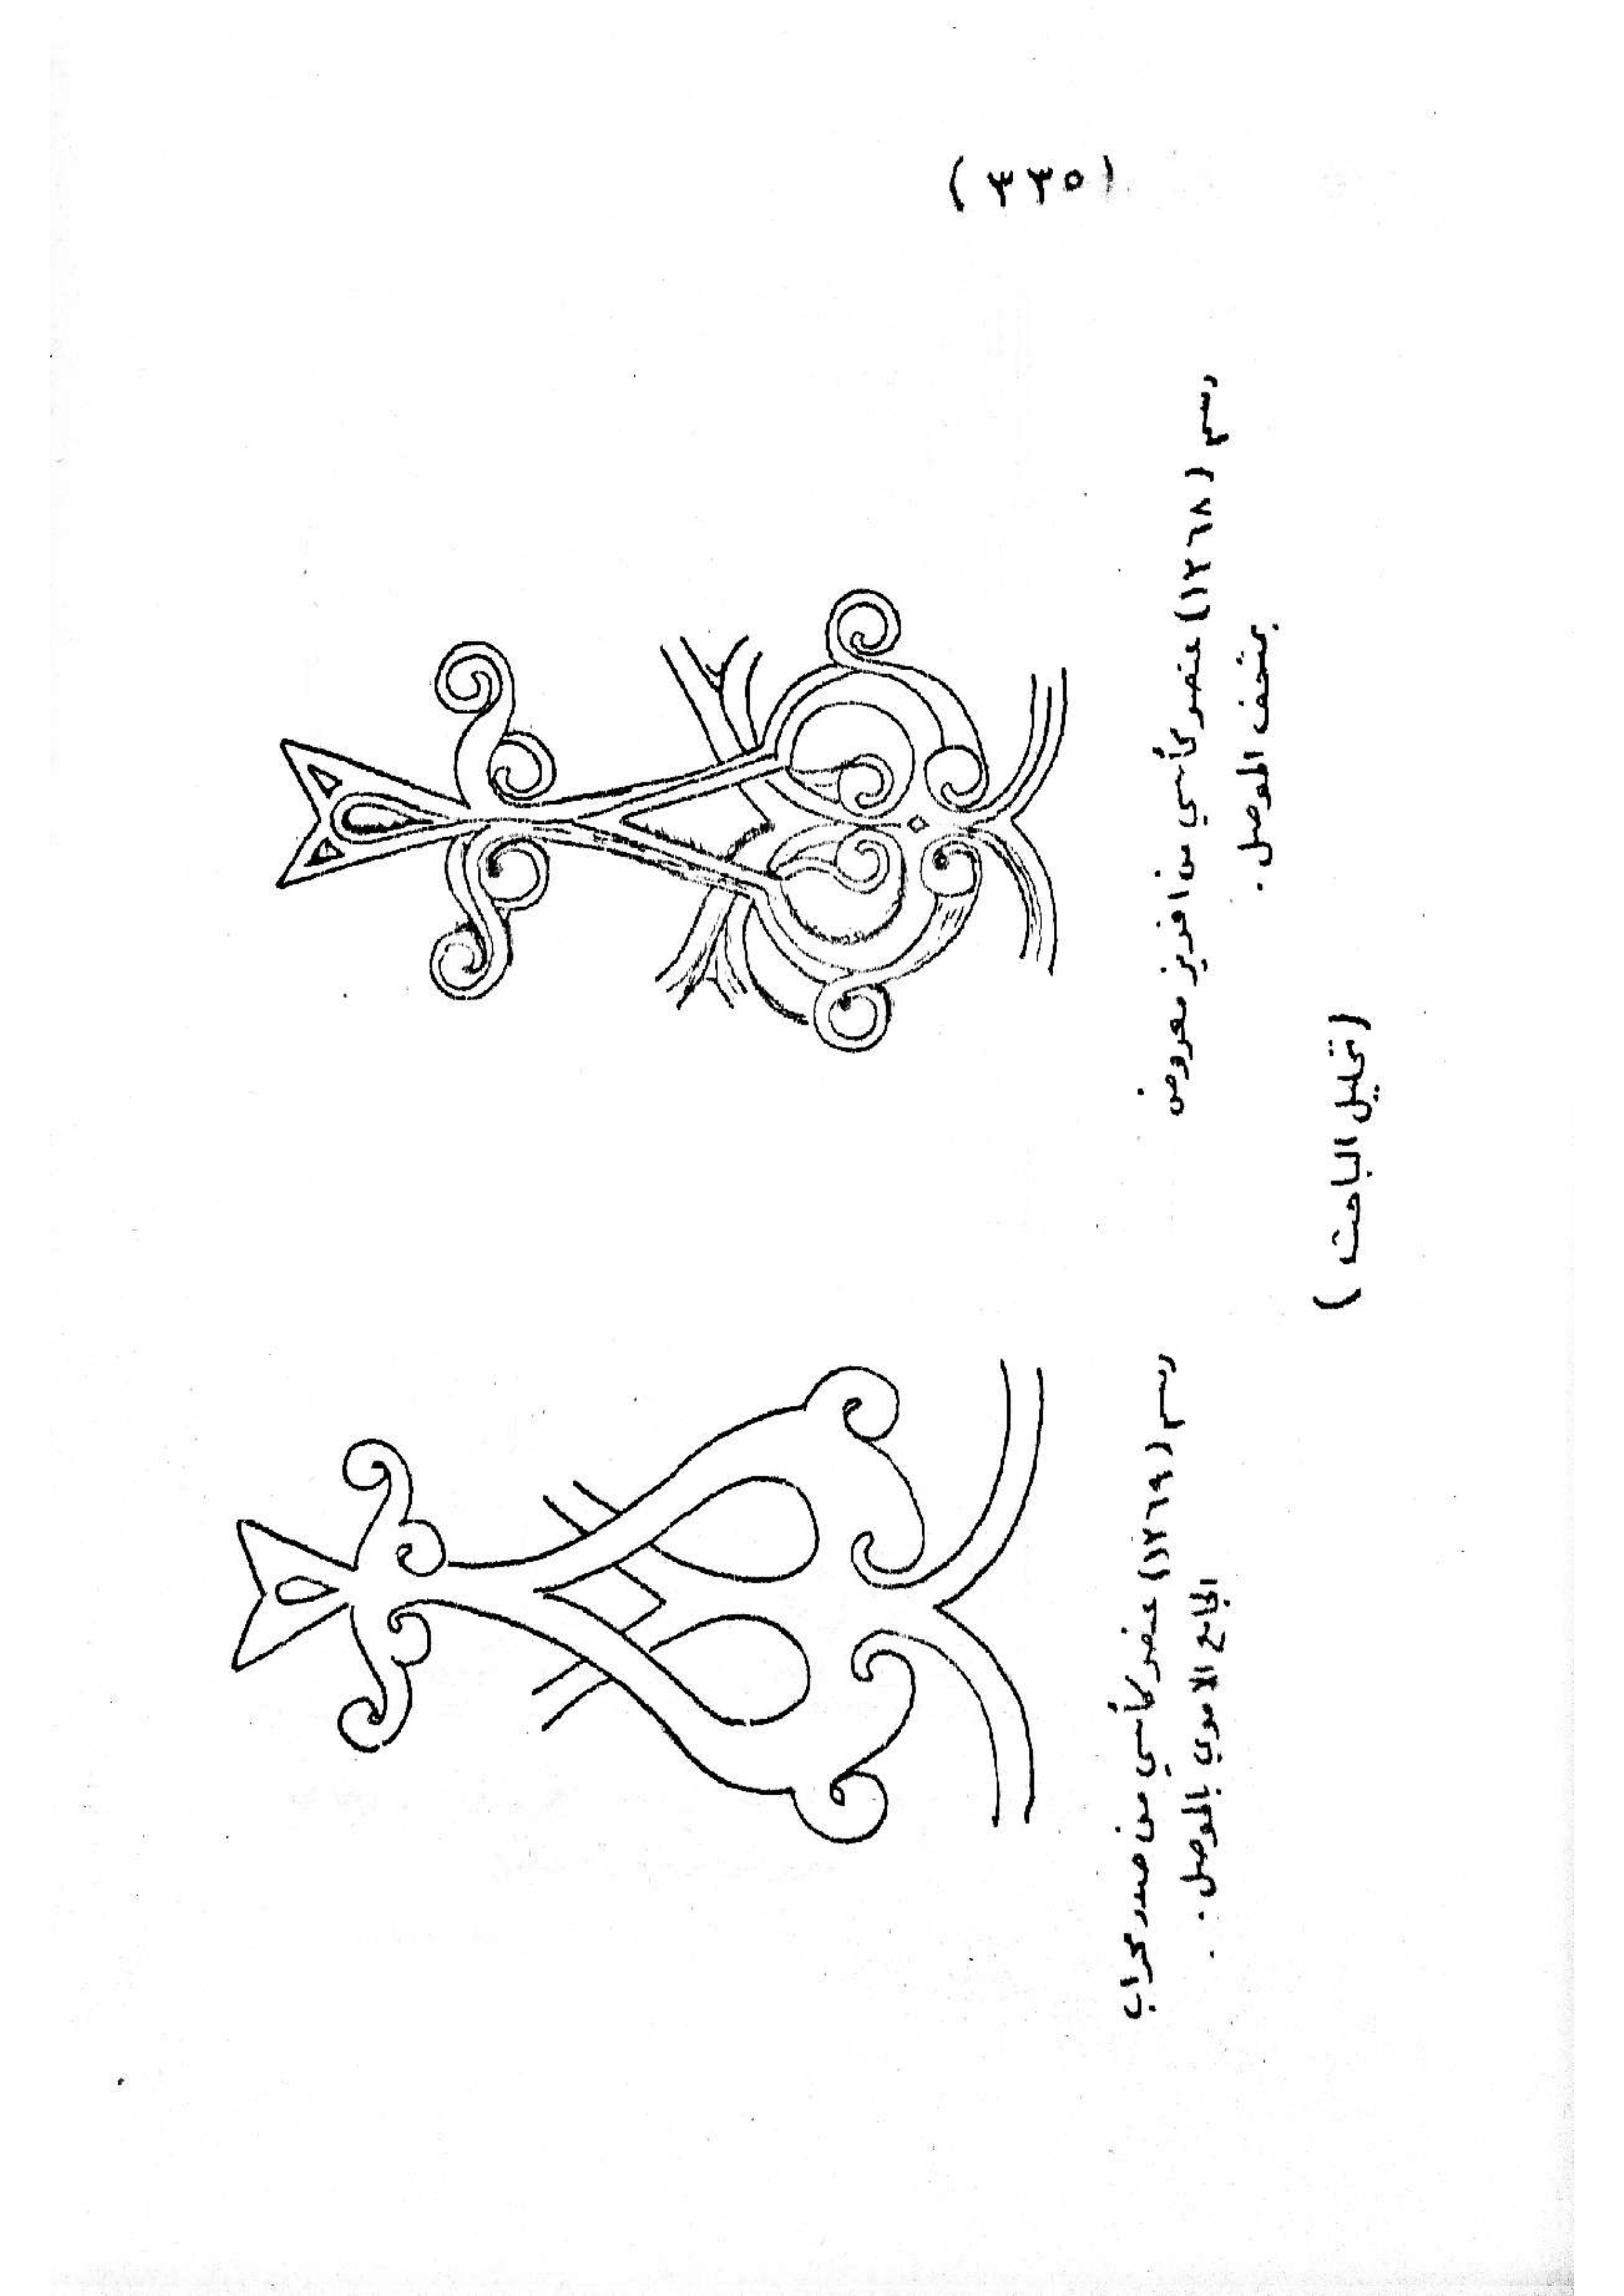 (٣٣٥)
رسم (١٢٦٨) عنصر كأسي من افريز معروض
بمتحف الموصل.
رسم (١٢٦٩) عنصر كأسي من صدر محراب
الجامع الاموي بالموصل.
(تحليل الباحث)